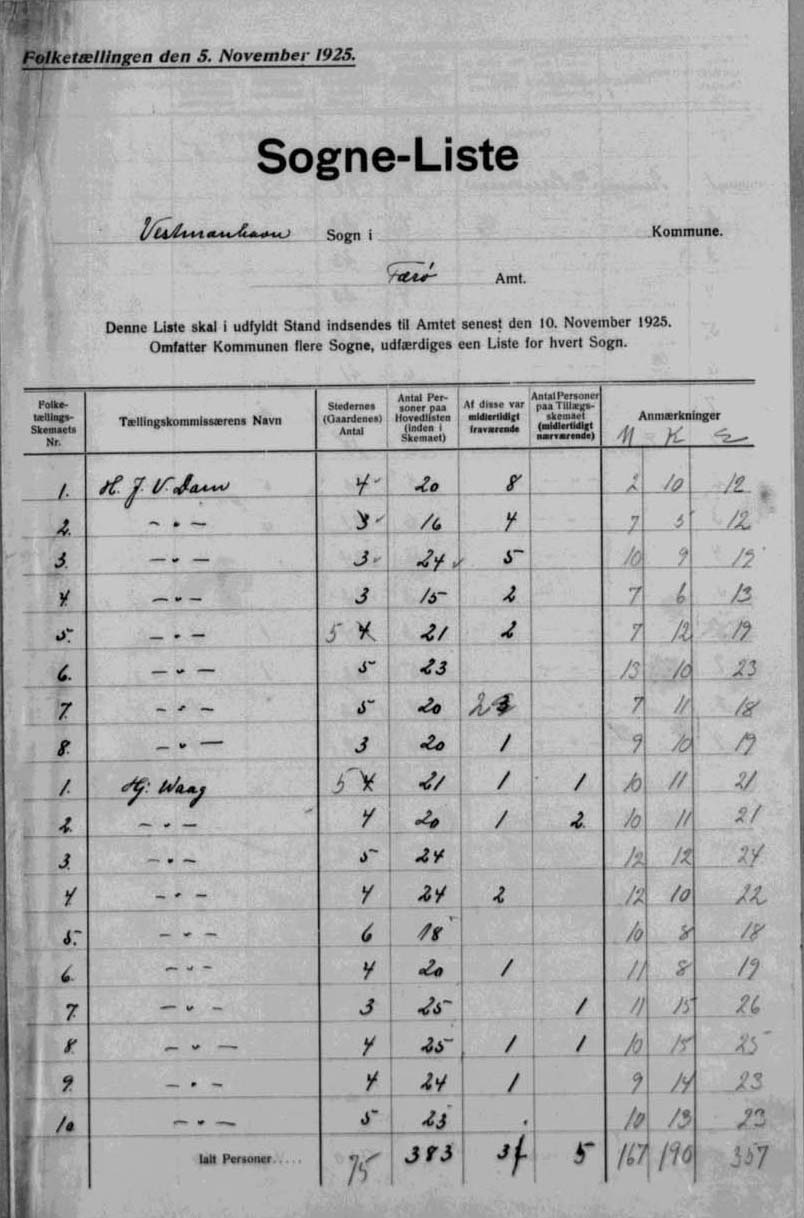 Folketællingen den 5. November 1925.
Sogne-Liste
Vestmanhavn Sogn i Kommune.
Færø Amt.
Denne Liste skal i udfyldt Stand indsendes til Amtet senest den 10. November 1925.
Omfatter Kommunen flere Sogne, udfærdiges een Liste for hvert Sogn.
Folketællings-Skemaets Nr. Tællingskommissærens Navn Stedernes (Gaardenes) Antal Antal Personer paa Hovedlisten (inden i Skemaet) Af disse var midlertidigt fraværende Antal Personer paa Tillægsskemaet (midlertidigt nærværende) Anmærkninger
M K
1. H. J. V. Dam 4 20 8 2 10 12
2. – " – 3 16 4 7 5 12
3. – " – 3 24 5 10 9 19
4 – " – 3 15 2 7 6 13
5. – " – 5 4 21 2 7 12 19
6. – " – 5 23 13 10 23
7. – " – 5 20 2 7 11 18
8. – " – 3 20 1 9 10 19
1. Hj: Waag 5 4 21 1 1 10 11 21
2. – " – 4 20 1 2 10 11 21
3. – " – 5 24 12 12 24
4 – " – 4 24 2 12 10 22
5. – " – 6 18 10 8 18
6. – " – 4 20 1 11 8 19
7. – " – 3 25 1 11 15 26
8. – " – 4 25 1 1 10 15 25
9. – " – 4 24 1 9 14 23
10 – " – 5 23 10 13 23
Ialt Personer..... 75 383 5 167 190 357